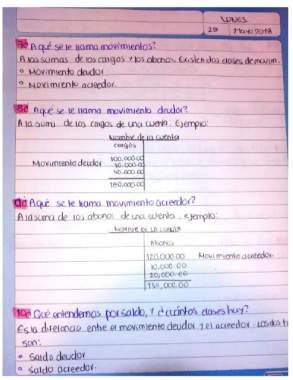 LUNES
29 Mayo 2018
7º A qué se le llama movimientos?
A las sumas de los cargos y los abonos. Existen dos clases de movim.
• Movimiento deudor
• Movimiento acreedor.
8º A qué se le llama movimiento deudor?
A la suma de los cargos de una cuenta. Ejemplo:
Nombre de la cuenta
cargos
Movimiento deudor 100,000.00
180,000.00
9º A qué se le llama movimiento acreedor?
A la suma de los abonos de una cuenta. ejemplo:
NOMBRE DE LA CUENTA
Abonos
120,000.00 Movimiento acreedor.
10,000.00
20,000.00
150,000.00
10º Qué entendemos por saldo, y de cuántas clases hay?
Es la diferencia entre el movimiento deudor y el acreedor. Los dos
son:
• Saldo deudor
• Saldo acreedor.